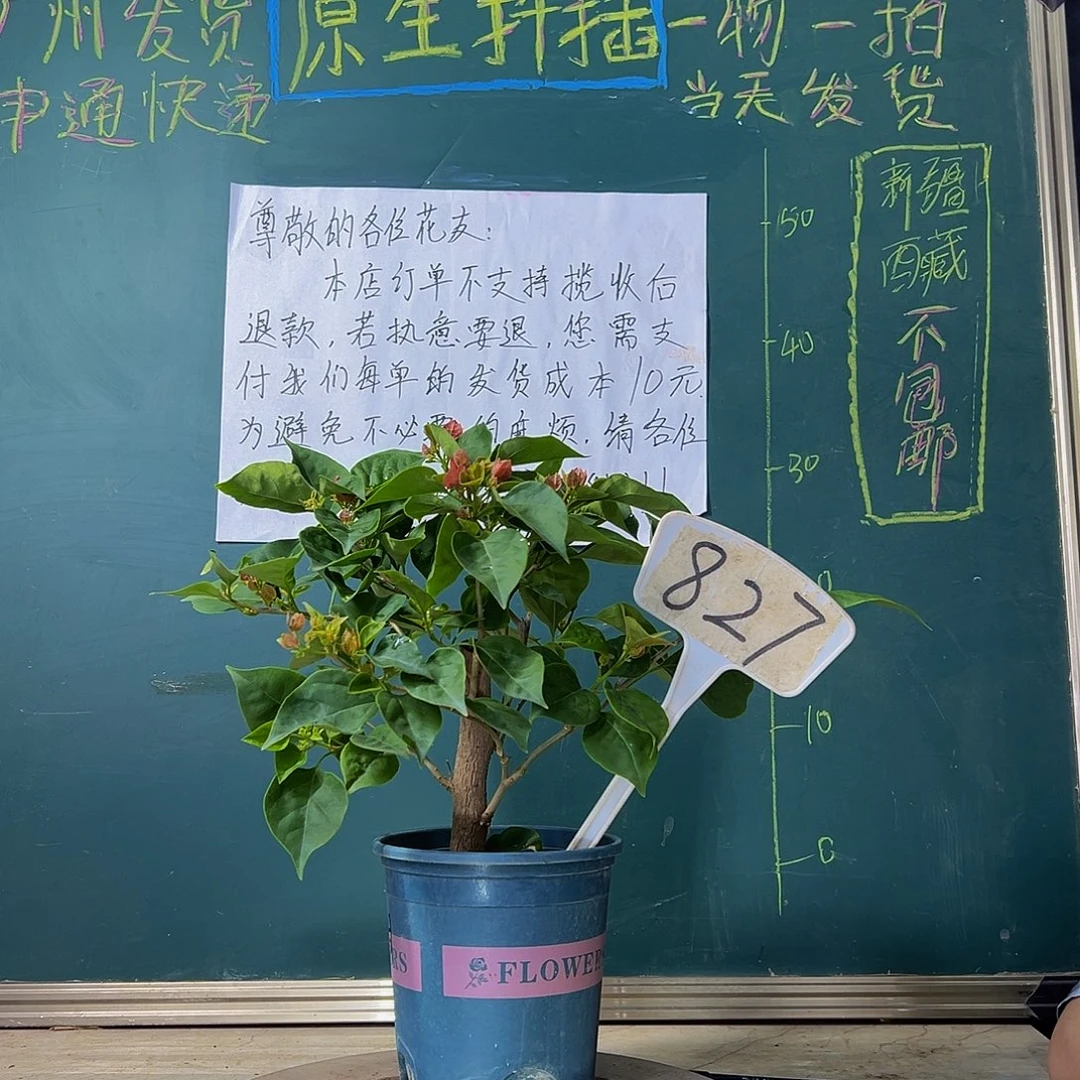 州发货
原生扦插
一物一拍
申通快递
当天发货
尊敬的各位花友:
本店订单不支持揽收后
退款,若执意要退,您需支
付我们每单的发货成本10元.
为避免不必要的麻烦.请各位
新疆
西藏
不包邮
50
40
30
10
0
827
FLOWER
RS